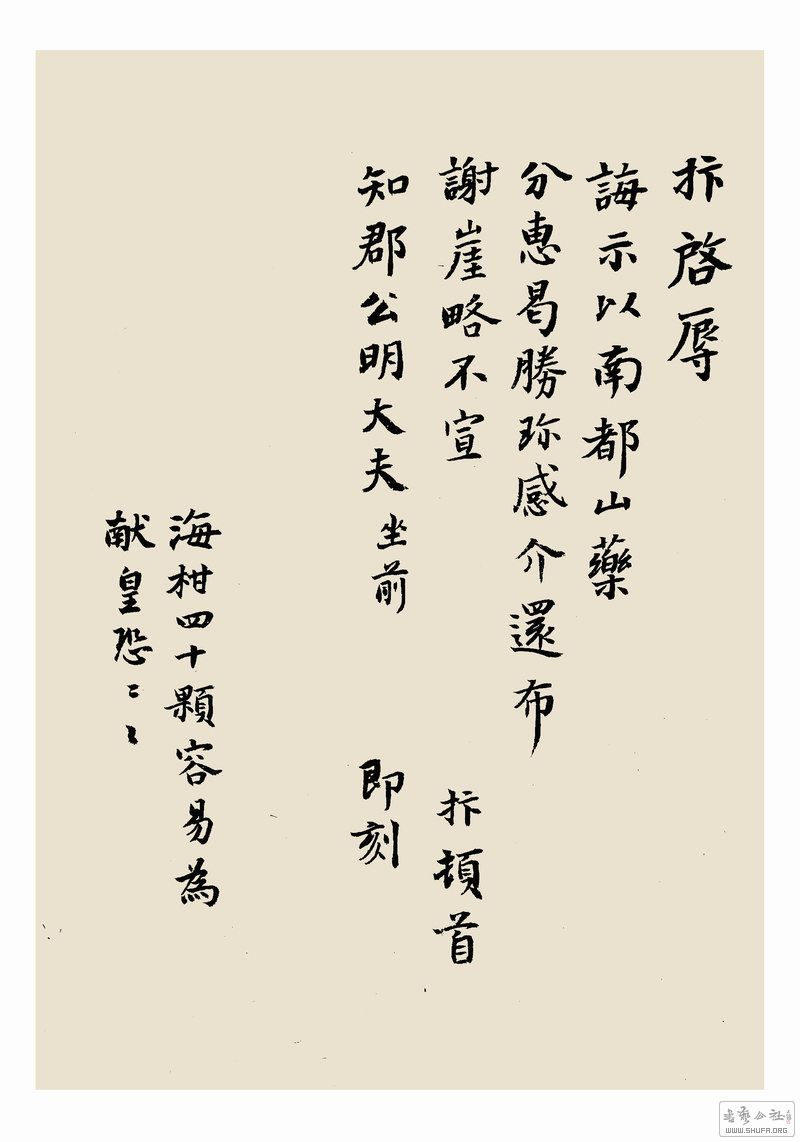 抃啓辱
誨示以南都山藥
分惠曷勝珎感介還布
謝崖略不宣
抃頓首
知郡公明大夫坐前
即刻
海柑四十顆容易為
献皇恐〻〻
書藝公社
WWW.SHUFA.ORG